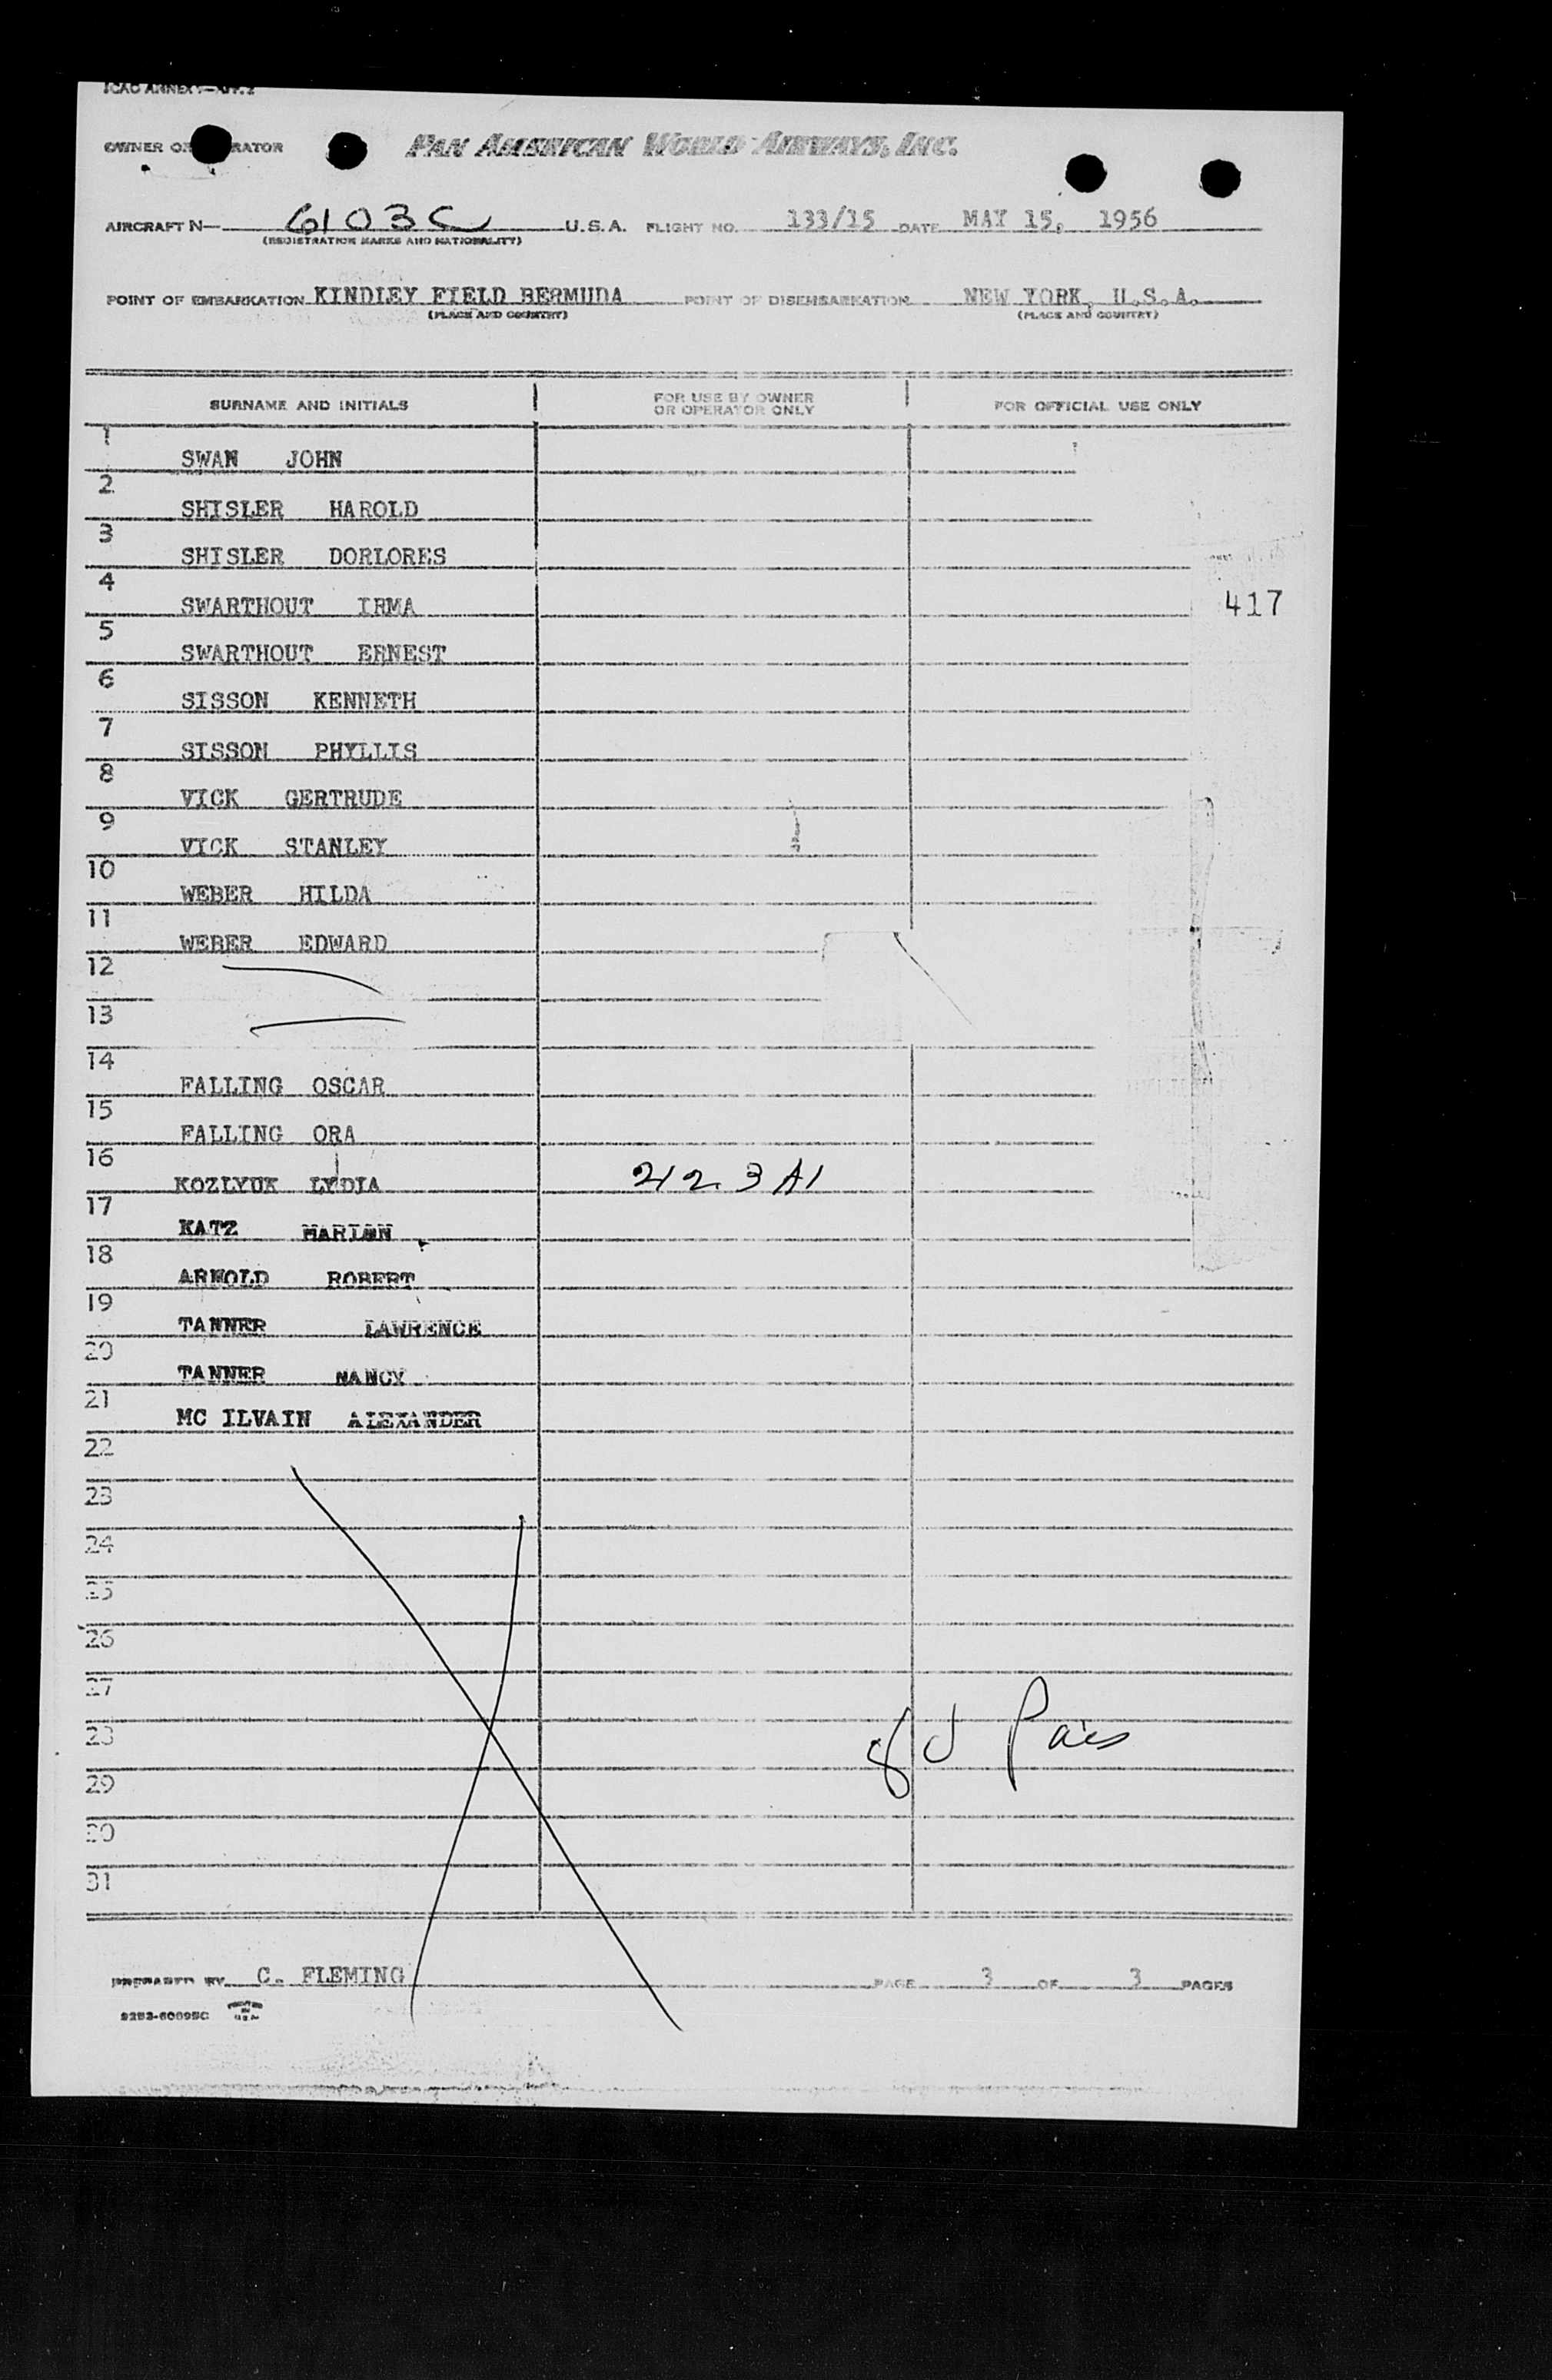 ICAO ANNEX 9—APP. 2
OWNER OR OPERATOR PAN AMERICAN WORLD AIRWAYS, INC.
AIRCRAFT N— 6103C U.S.A. FLIGHT NO. 133/15 DATE MAY 15, 1956
(REGISTRATION MARKS AND NATIONALITY)
POINT OF EMBARKATION KINDLEY FIELD BERMUDA POINT OF DISEMBARKATION NEW YORK, U.S.A.
(PLACE AND COUNTRY) (PLACE AND COUNTRY)
SURNAME AND INITIALS FOR USE BY OWNER OR OPERATOR ONLY FOR OFFICIAL USE ONLY
1 SWAN JOHN
2 SHISLER HAROLD
3 SHISLER DORLORES
4 SWARTHOUT IRMA 417
5 SWARTHOUT ERNEST
6 SISSON KENNETH
7 SISSON PHYLLIS
8 VICK GERTRUDE
9 VICK STANLEY
10 WEBER HILDA
11 WEBER EDWARD
12
13
14 FALLING OSCAR
15 FALLING ORA
16 KOZLYUK LYDIA 212.3 A1
17 KATZ MARIAN
18 ARNOLD ROBERT
19 TANNER LAWRENCE
20 TANNER NANCY
21 MC ILVAIN ALEXANDER
22
23
24
25
26
27
28
29
30
31
PREPARED BY C. FLEMING PAGE 3 OF 3 PAGES
PRINTED IN U.S.A.